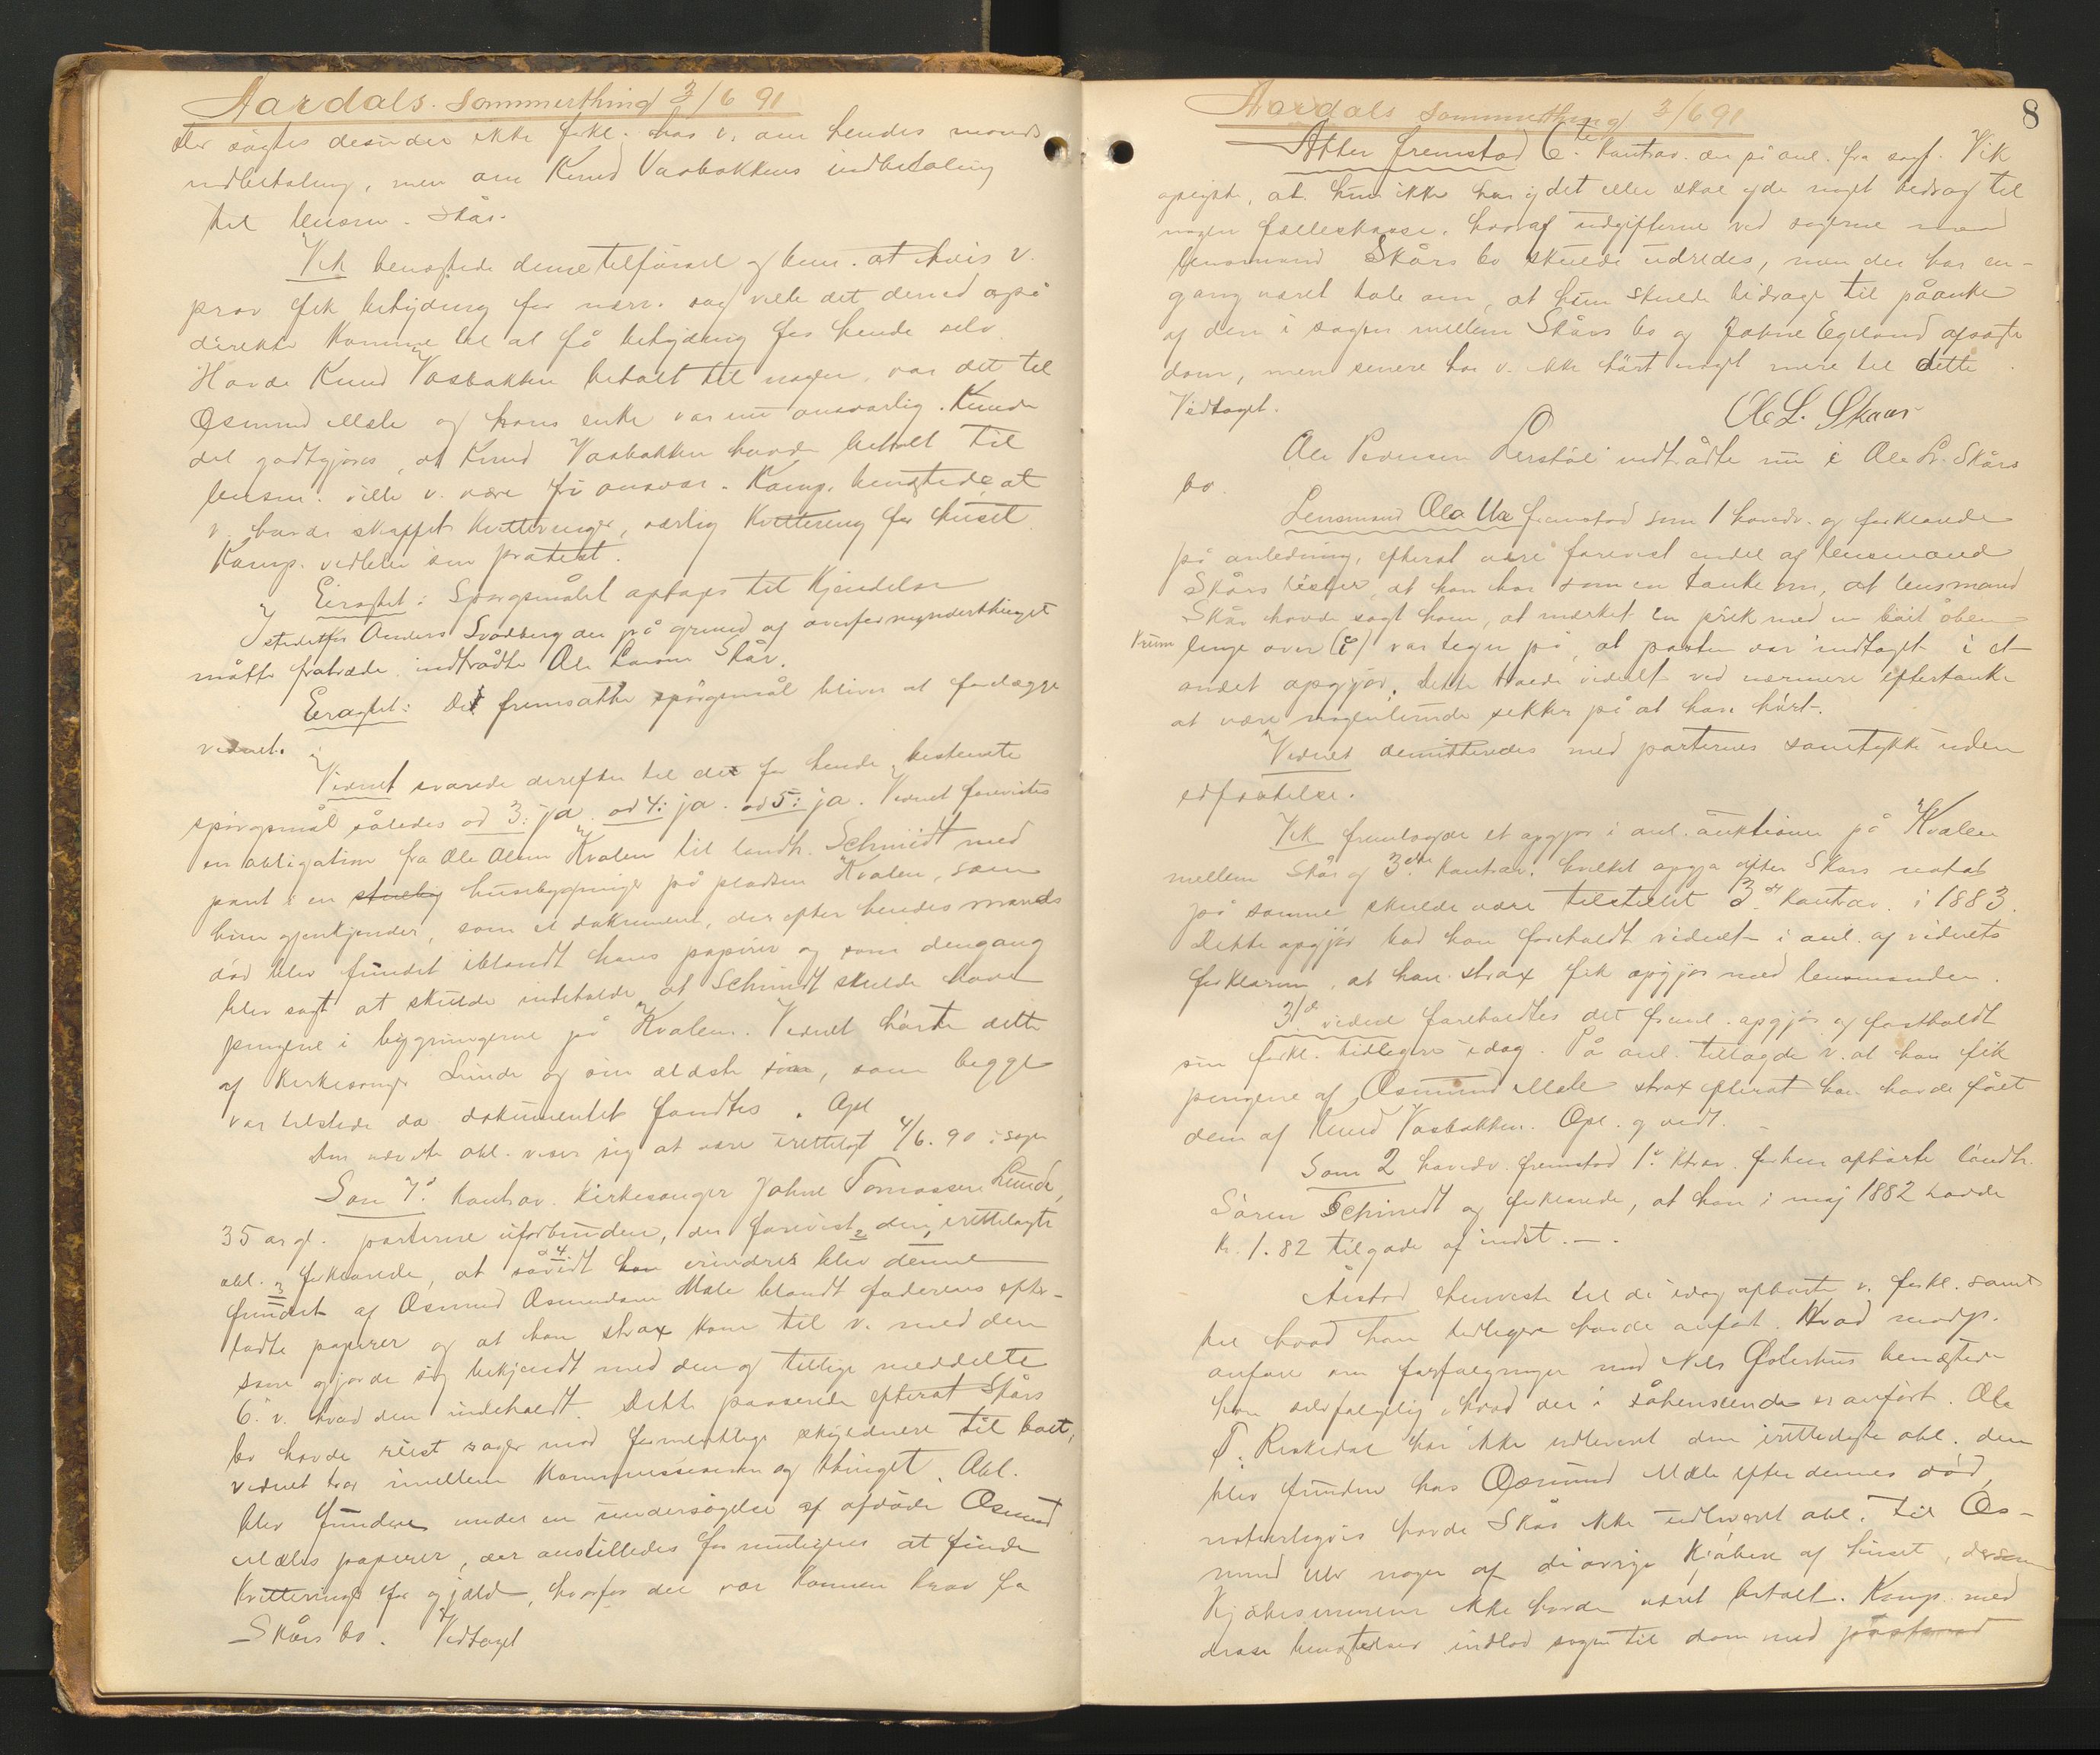 Aardals sommerthing 3/6 91
der søgtes desuden ikke forkl. hos v. om hendes mands
indbetaling, men om Knud Vasbakkens indbetaling
til lensm. Skår.
Vik benægtede denne tilførsel og bem. at hvis v.
prov fik betydning for nærv. sag ville det derved også
direkte komme til at få betydning for hende selv.
Havde Knud Vasbakken betalt til nogen, var det til
Osmund Mæle og hans enke var nu ansvarlig. Kunde
det godtgjøres, at Knud Vasbakken havde betalt til
lensm. ville v. være fri ansvar. Komp. benægtede at
v. havde skaffet kvitteringer, særlig kvittering for huset.
Komp. vedblev sin protest.
Eragtet: Spørgsmålet optages til Kjendelse
Istedetfor Anders Svadberg der på grund af overformynderthinget
måtte fratræde indtrådte Ole Larsen Skår.
Eragtet: Det fremsatte spörgsmål bliver at forelægge
vidnet.
Vidnet svarede derefter til de for hende bestemte
spörgsmål således ad 3: ja ad 4: ja. ad 5: ja. Vidnet forevistes
en obligation fra Ole Olsen Kvalen til landh. Schmidt med
pant i en husebygninger på pladsen Kvalen, som
hun gjenkjender, som et dokument, der efter hendes mands
död blev fundet iblandt hans papirer og som dengang
blev sagt at skulde indeholde at Schmidt skulde have
pengene i bygningerne på Kvalen. Vidnet hørte dette
af kirkesanger Lunde og sin ældste sön, som begge
var tilstede da dokumentet fandtes. Opl
Den nævnte obl. viser sig at være irettelagt 4/6. 90 i sagen
Som 7de kontrav. kirkesanger Johne Tomassen Lunde,
35 år gl. parterne uforbunden, der forevist den irettelagte
obl. forklarede, at såvidt han erindrer blev denne
fundet af Osmund Osmundsen Mæle blandt faderens efter-
ladte papirer og at han strax kom til v. med den
som gjorde sig bekjendt med den og tillige meddelte
6te v. hvad den indeholdt. Dette passerede efterat Skårs
bo havde reist sager mod formentlige skyldnere til boet,
vidnet tror imellem Kommissionen og thinget. Obl.
blev funden under en undersøgelse af afdöde Osmund
Mæles papirer, der anstilledes for muligens at finde
kvitteringer for gjæld, hvorfor der var kommen krav fra
Skårs bo. Vedtaget
Aardals sommerthing 3/6 91
8
Atter fremstod 6te kontrav. der på anl. fra sagf. Vik
opgiver, at hun ikke har ydet eller skal yde noget bidrag til
nogen fælleskasse, hvoraf udgifterne ved sagerne mod
lensmand Skårs bo skulde udredes, men der har en-
gang været tale om, at hun skulde bidrage til påanke
af den i sagen mellem Skårs bo og Johne Egeland afsagte
dom, men senere har v. ikke hört noget mere til dette.
Vedtaget.
Ole L. Skaar
Ole Pedersen Lerstöl indtrådte nu i Ole Lr. Skårs
bo.
Lensmand Ola Ur fremstod som 1 hovedv. og forklarede
på anledning, efterat være forevist endel af lensmand
Skårs lister, at han har som en tanke om, at lensmand
Skår havde sagt ham, at mærket en prik med en bait åben
krum linje over var tegn på, at posten var indtaget i et
andet opgjör. Dette troede vidnet ved nærmere eftertanke
at være nogenlunde sikker på at have hört.
Vidnet demitteredes med parternes samtykke uden
edfæstelse.
Vik fremlagde et opgjör i anl. auktionen på Kvalen
mellem Skår og 3die kontrav. hvilket opgjør efter Skårs notat
på samme skulde være tilstillet 3die kontrav. i 1883.
Dette opgjör bad han foreholdt vidnet i anl. af vidnets
forklaring, at han strax fik opgjör med lensmanden.
3die vidne foreholdtes det freml. opgjör og fastholdt
sin forkl. tidligere idag. På anl. tillagde v. at han fik
pengene af Osmund Mæle strax efterat han havde fået
dem af Knud Vasbakken. Opl. g vedt.
Som 2 hovedv. fremstod 1ste ktrav. forhen afhørte landh.
Sören Schmidt og forklarede, at han i maj 1882 havde
Kr. 1.82 tilgode af indst. —.
Årstad henviste til de idag afhørte v. forkl. samt
til hvad han tidligere havde anført. Hvad modp.
anfører om forfølgninger mod Nils Österhus benægtede
han selvfølgelig, hvad der i såhenseende er anfört. Ole
T. Riskedal har ikke udleveret den irettelagte obl., den
blev funden hos Osmund Mæle efter dennes död,
naturligvis havde Skår ikke udleveret obl. til Os-
mund eller nogen af de övrige kjöbere af huset, dersom
Kjöbesummen ikke havde været betalt. Komp. med
disse benægtelser indlod sagen til dom med påstand